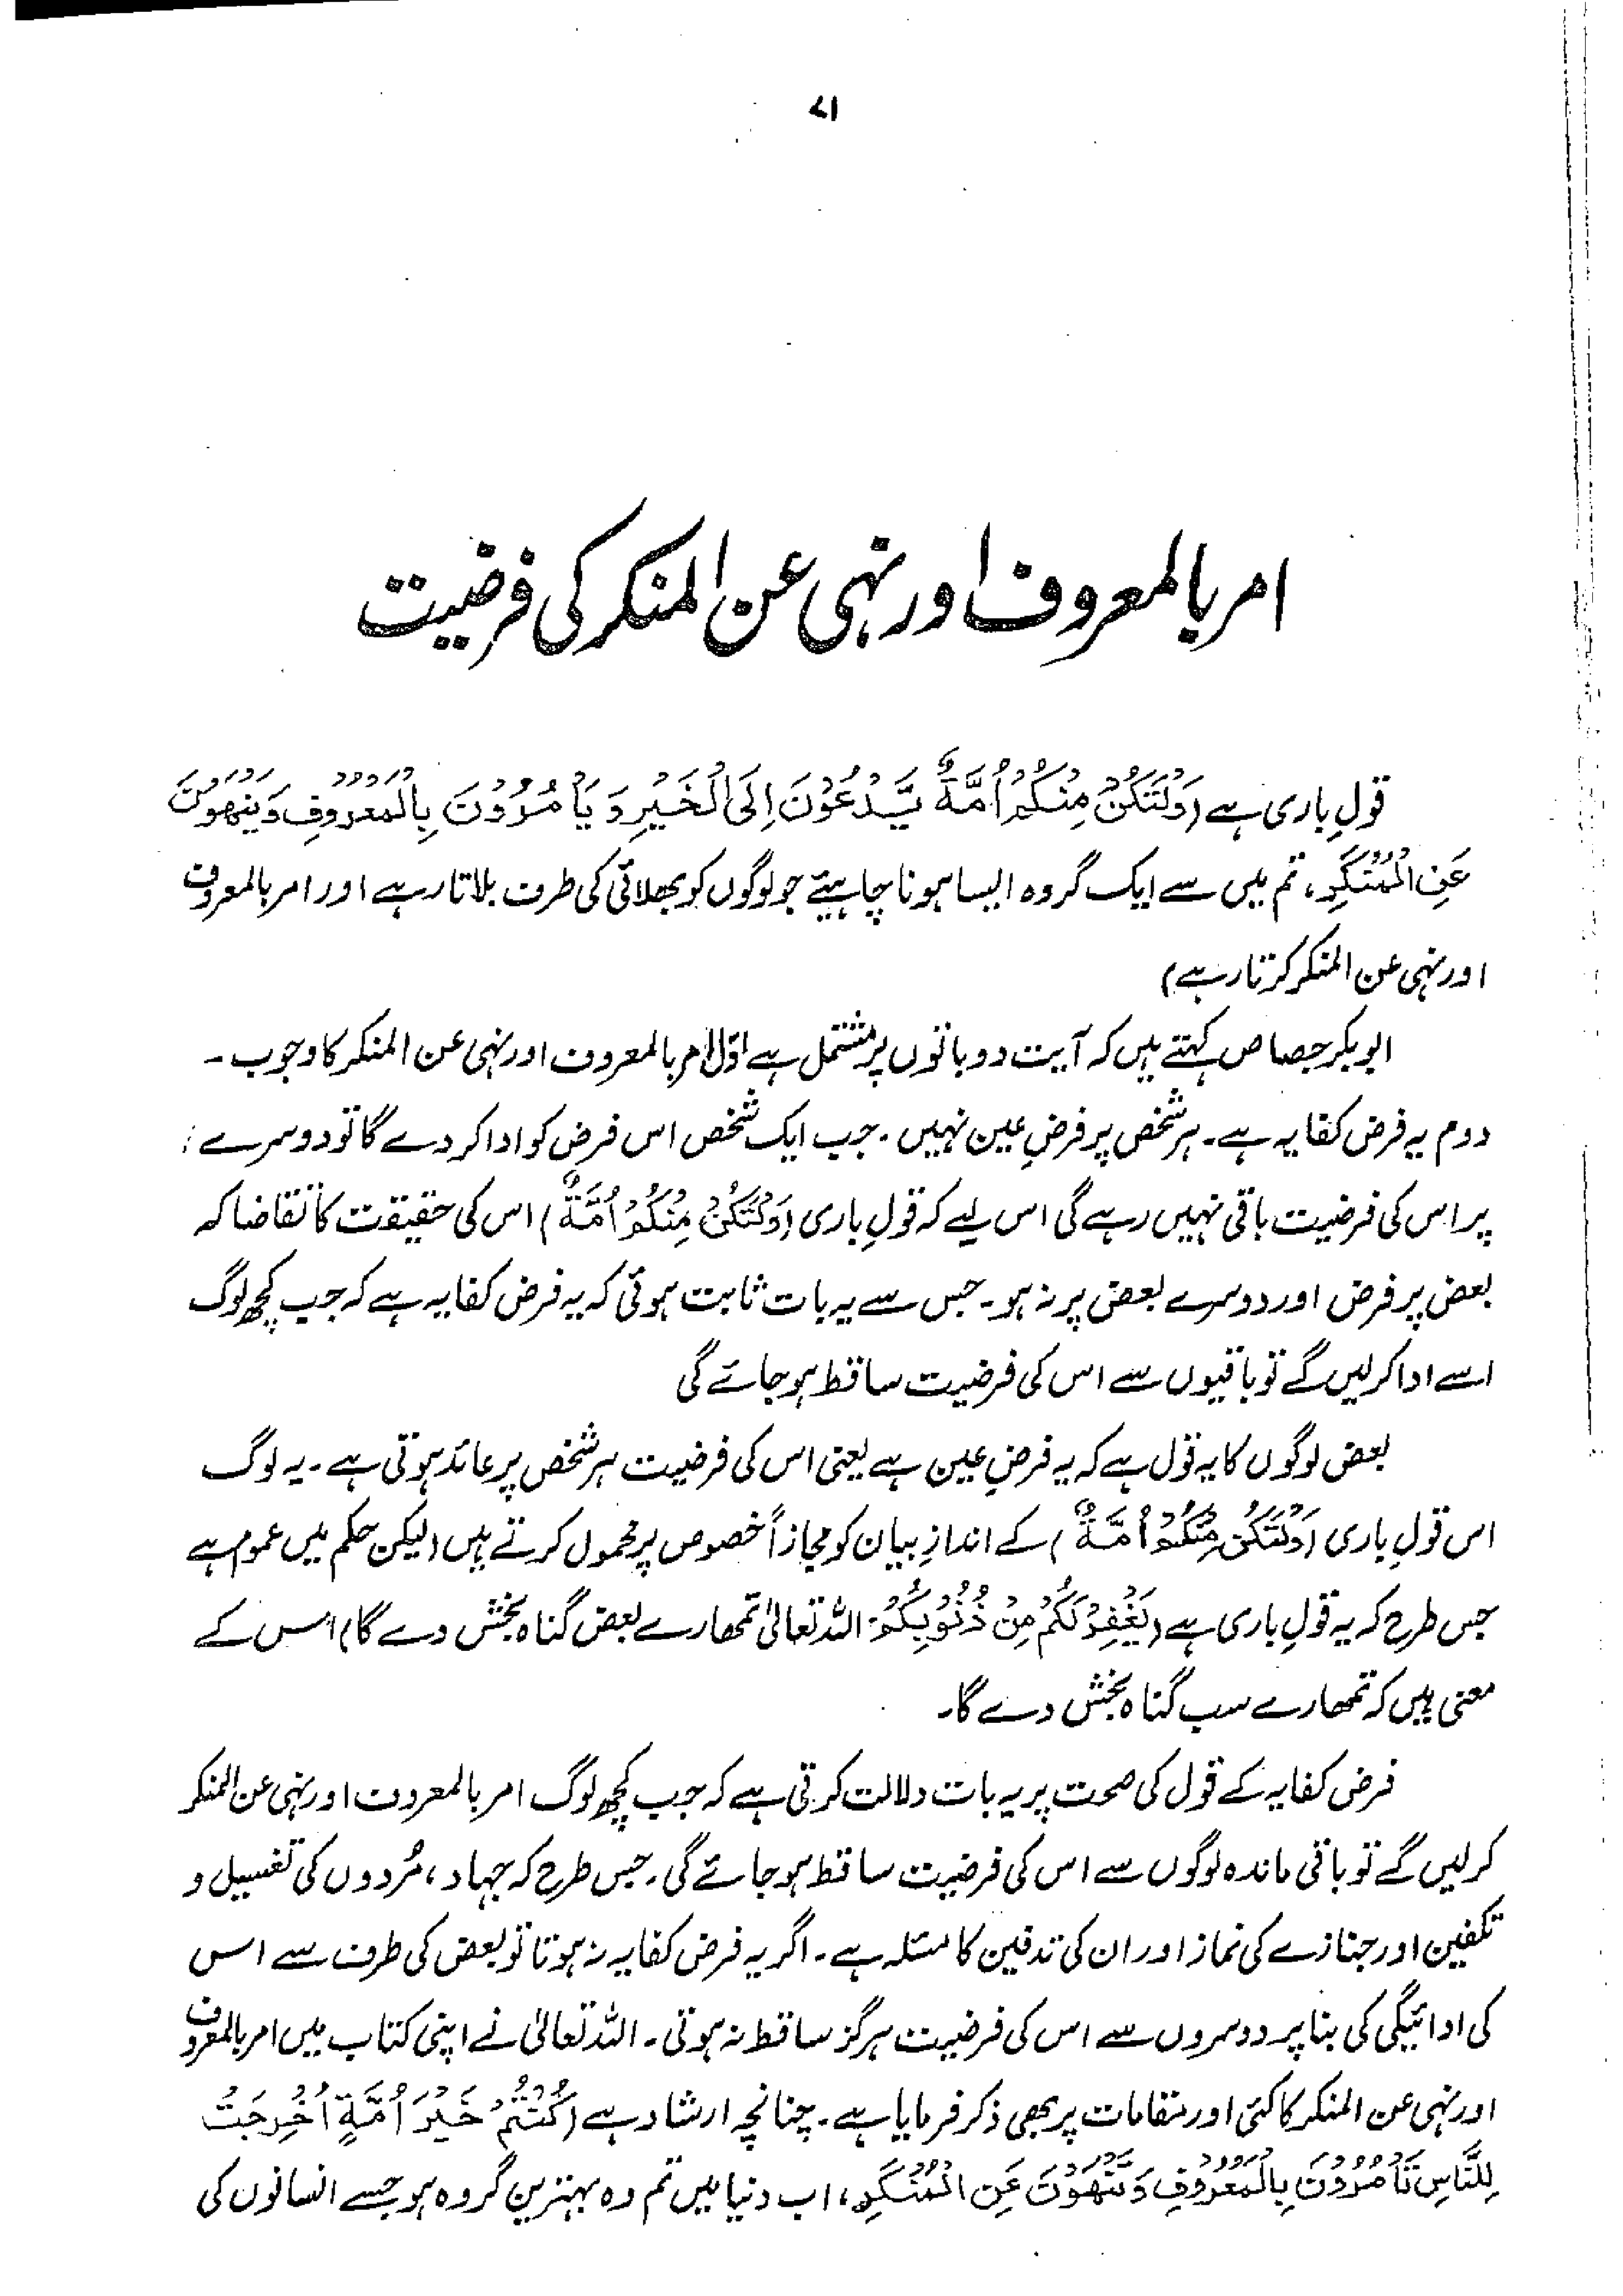 ۷۱
امر بالمعروف اور نہی عن المنکر کی فرضیت
قولِ باری ہے (وَلْتَكُنْ مِنْكُمْ أُمَّةٌ يَّدْعُوْنَ اِلَى الْخَيْرِ وَ يَأْمُرُوْنَ بِالْمَعْرُوْفِ وَيَنْهَوْنَ
عَنِ الْمُنْكَرِ، تم میں سے ایک گروہ ایسا ہونا چاہیئے جو لوگوں کو بھلائی کی طرف بلاتا رہے اور امر بالمعروف
اور نہی عن المنکر کرتا رہے)
ابوبکر جصاص کہتے ہیں کہ آیت دو باتوں پر مشتمل ہے اوّل امر بالمعروف اور نہی عن المنکر کا وجوب۔
دوم یہ فرض کفایہ ہے۔ ہر شخص پر فرضِ عین نہیں۔ جب ایک شخص اس فرض کو ادا کر دے گا تو دوسرے
پر اس کی فرضیت باقی نہیں رہے گی اس لیے کہ قولِ باری (وَلْتَكُنْ مِنْكُمْ أُمَّةٌ) اس کی حقیقت کا تقاضا کہ
بعض پر فرض اور دوسرے بعض پر نہ ہو۔ جس سے یہ بات ثابت ہوئی کہ یہ فرض کفایہ ہے کہ جب کچھ لوگ
اسے ادا کر لیں گے تو باقیوں سے اس کی فرضیت ساقط ہو جائے گی
بعض لوگوں کا یہ قول ہے کہ یہ فرضِ عین ہے یعنی اس کی فرضیت ہر شخص پر عائد ہوتی ہے۔ یہ لوگ
اس قولِ باری (وَلْتَكُنْ مِنْكُمْ أُمَّةٌ) کے اندازِ بیان کو مجازاً خصوص پر محمول کرتے ہیں (لیکن حکم میں عموم ہے
جس طرح کہ یہ قولِ باری ہے (يَغْفِرْ لَكُمْ مِنْ ذُنُوْبِكُمْ، اللہ تعالیٰ تمھارے بعض گناہ بخش دے گا) اس کے
معنی ہیں کہ تمھارے سب گناہ بخش دے گا۔
فرض کفایہ کے قول کی صحت پر یہ بات دلالت کرتی ہے کہ جب کچھ لوگ امر بالمعروف اور نہی عن المنکر
کر لیں گے تو باقی ماندہ لوگوں سے اس کی فرضیت ساقط ہو جائے گی۔ جس طرح کہ جہاد، مُردوں کی تغسیل و
تکفین اور جنازے کی نماز اور ان کی تدفین کا مسئلہ ہے۔ اگر یہ فرض کفایہ نہ ہوتا تو بعض کی طرف سے اس
کی ادائیگی کی بنا پر دوسروں سے اس کی فرضیت ہرگز ساقط نہ ہوتی۔ اللہ تعالیٰ نے اپنی کتاب میں امر بالمعروف
اور نہی عن المنکر کا کئی اور مقامات پر بھی ذکر فرمایا ہے۔ چنانچہ ارشاد ہے (كُنْتُمْ خَيْرَ أُمَّةٍ أُخْرِجَتْ
لِلنَّاسِ تَأْمُرُوْنَ بِالْمَعْرُوْفِ وَتَنْهَوْنَ عَنِ الْمُنْكَرِ، اب دنیا میں تم وہ بہترین گروہ ہو جسے انسانوں کی